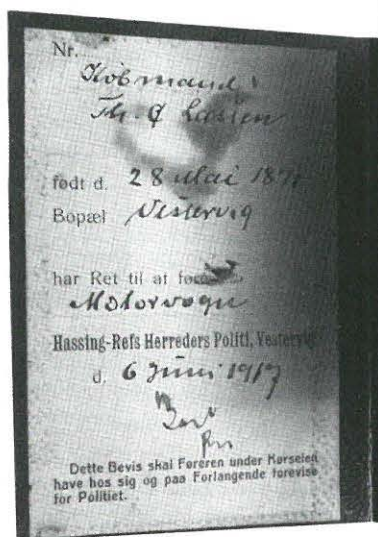 Nr.
Købmand
Th. Ø Larsen
født d. 28 Mai
Bopæl Vestervig
har Ret til at føre
Motorvogn
Hassing-Refs Herreders Politi, Vestervig
d. 6 Juni 1917
Dette Bevis skal Føreren under Kørselen
have hos sig og paa Forlangende forevise
for Politiet.